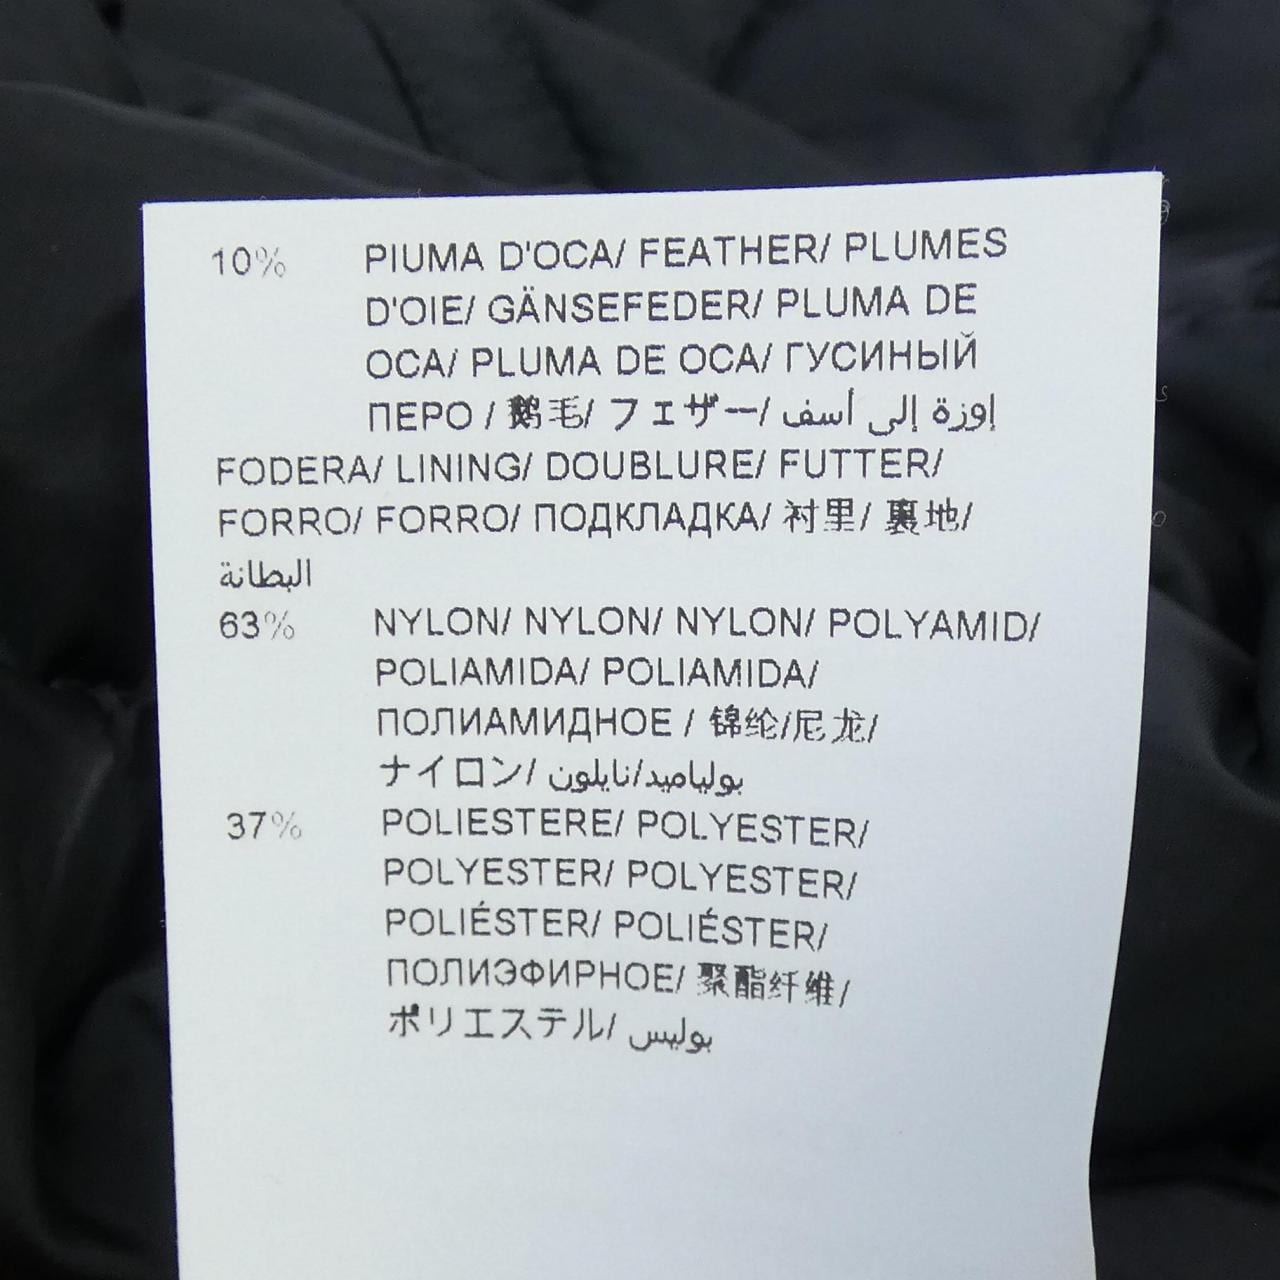 10% PIUMA D'OCA/ FEATHER/ PLUMES
D'OIE/ GÄNSEFEDER/ PLUMA DE
OCA/ PLUMA DE OCA/ ГУСИНЫЙ
ПЕРО / 鹅毛/ フェザー/ إوزة إلى أسف
FODERA/ LINING/ DOUBLURE/ FUTTER/
FORRO/ FORRO/ ПОДКЛАДКА/ 衬里/ 裏地/
البطانة
63% NYLON/ NYLON/ NYLON/ POLYAMID/
POLIAMIDA/ POLIAMIDA/
ПОЛИАМИДНОЕ / 锦纶/尼龙/
ナイロン/ بولياميد/نايلون
37% POLIESTERE/ POLYESTER/
POLYESTER/ POLYESTER/
POLIÉSTER/ POLIÉSTER/
ПОЛИЭФИРНОЕ/ 聚酯纤维/
ポリエステル/ بوليس